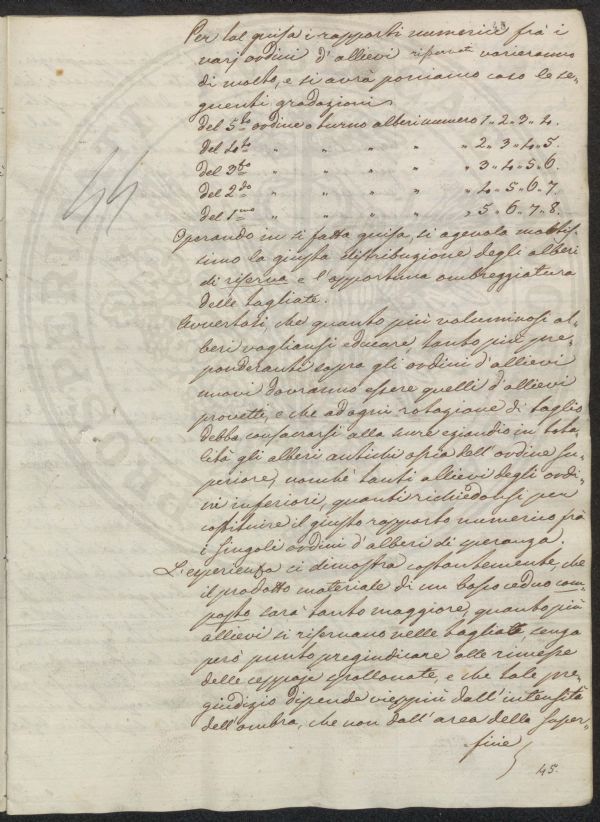 Per tal guisa i rapporti numerici frà i
varj ordini d'allievi riservati varieranno
di molto, e si avrà poniamo caso le se-
guenti gradazioni
del 5to ordine o turno alberi numero 1 „ 2 „ 3 „ 4.
del 4to „ „ „ „ „ 2 „ 3 „ 4 „ 5.
del 3zo „ „ „ „ „ 3 „ 4 „ 5 „ 6.
del 2do „ „ „ „ „ 4 „ 5 „ 6 „ 7.
del 1mo „ „ „ „ „ 5 „ 6 „ 7 „ 8.
44
Operando in sì fatta guisa, si agevola moltis-
simo la giusta distribuzione degli alberi
di riserva e l'opportuna ombreggiatura
delle tagliate.
Avvertasi, che quanto più voluminosi al-
beri vogliansi educare, tanto più pre-
ponderanti sopra gli ordini d'allievi
nuovi dovranno essere quelli d'allievi
provetti, e che ad ogni rotazione di taglio
debba consacrarsi alla scure eziandio in tota-
lità gli alberi antichi ossia dell'ordine su-
periore, nonchè tanti allievi degli ordi-
ni inferiori, quanti richiedonsi per
costituire il giusto rapporto numerico frà
i singoli ordini d'alberi di speranza.
L'esperienza ci dimostra costantemente, che
il prodotto materiale di un bosco ceduo com-
posto sarà tanto maggiore, quanto più
allievi si riservano nelle tagliate, senza
però punto pregiudicare alle rimesse
delle ceppaje spollonate, e che tale pre-
giudizio dipende vieppiù dall'intensità
dell'ombra, che non dall'area della super-
ficie
45.